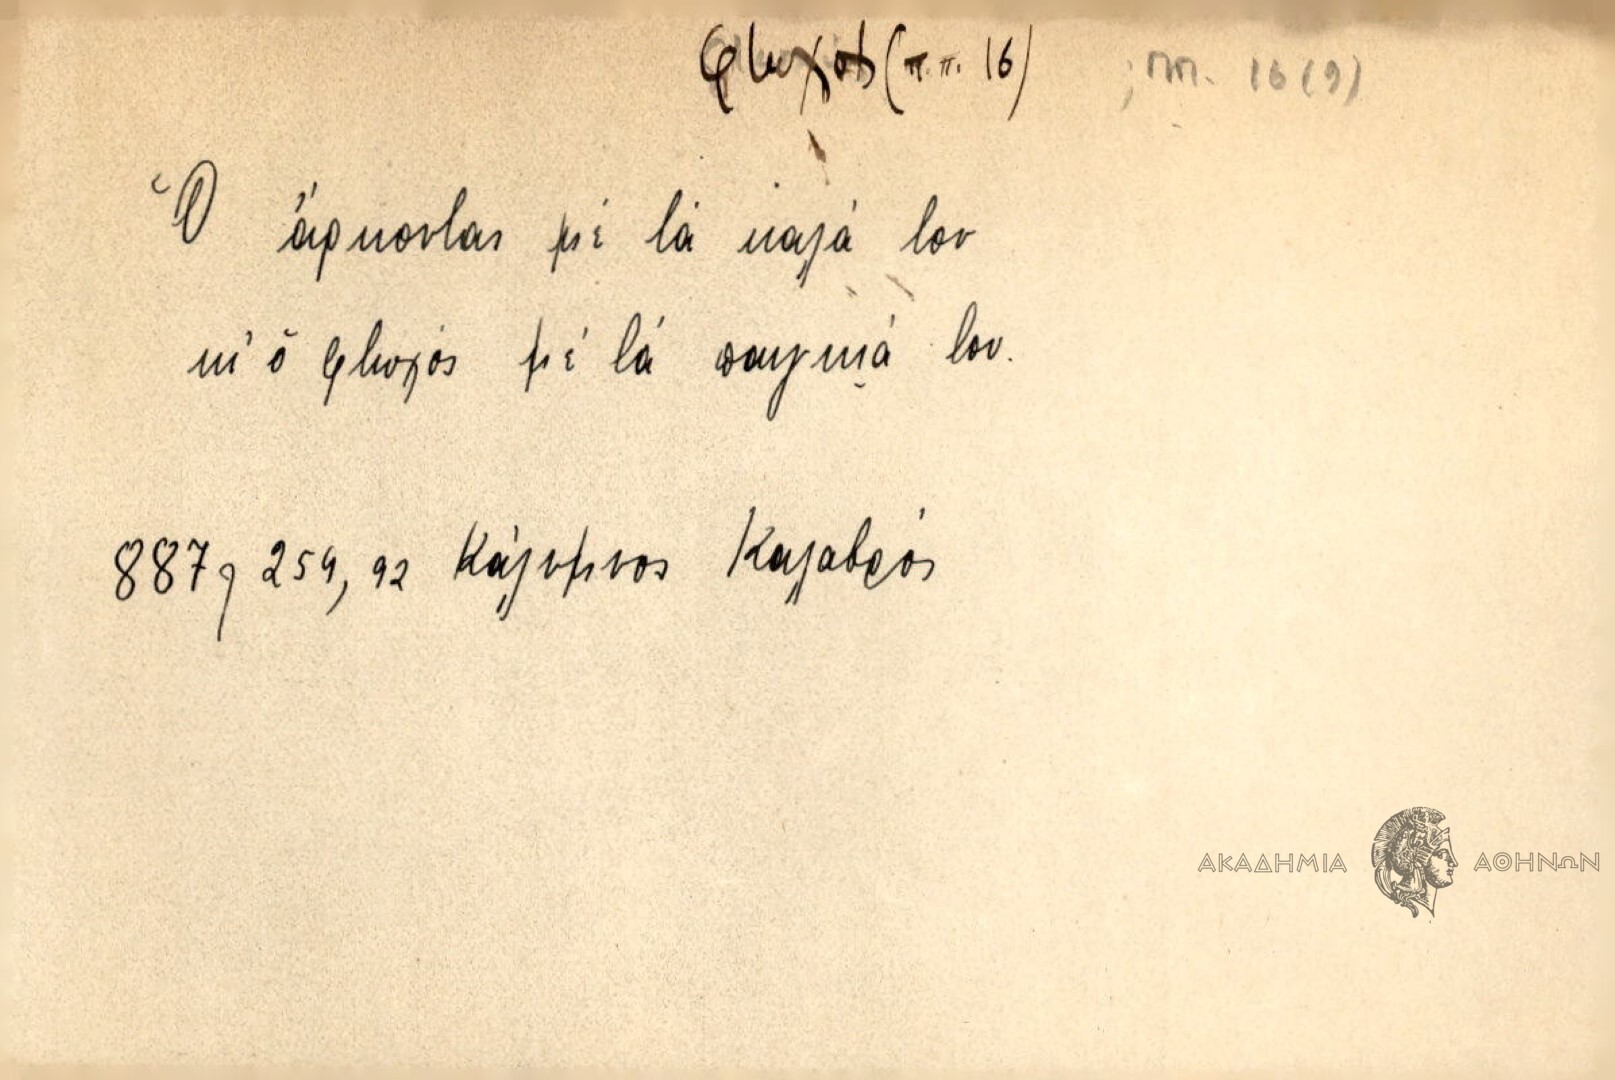 φτωχός (π.π. 16) ; ππ. 16 (9)
Ὁ ἄρκοντας μὲ τὰ καλά του
κι' ὁ φτωχός μὲ τὰ παιγκιά του.
887, 254, 92 Κάλυμνος Καλαβρός
ΑΚΑΔΗΜΙΑ ΑΘΗΝΩΝ